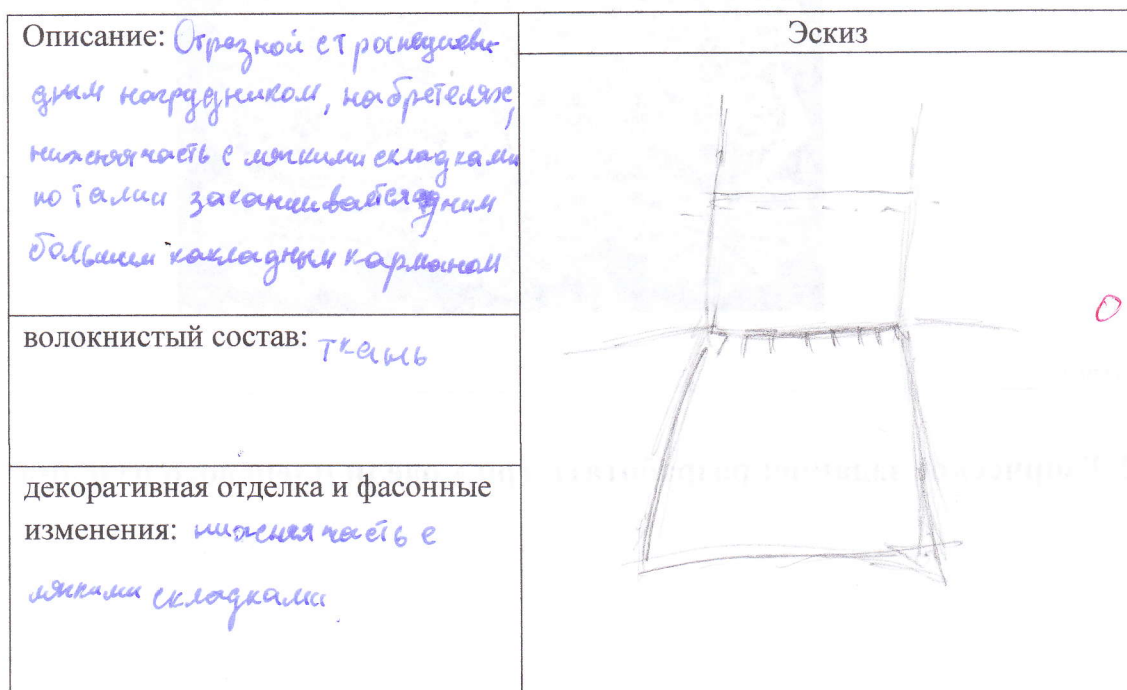 Описание: Отрезной с трапециеви
дным нагрудником, на бретелях,
нижняя часть с мягкими складками
по талии заканчивается одним
большим накладным карманом
волокнистый состав: ткань
декоративная отделка и фасонные
изменения: нижняя часть с
мягкими складками
Эскиз
0